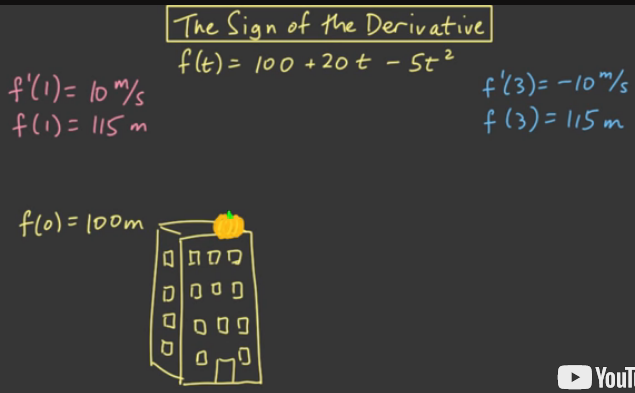 The Sign of the Derivative
f(t) = 100 + 20t - 5t²
f'(1) = 10 m/s
f(1) = 115 m
f'(3) = -10 m/s
f(3) = 115 m
f(0) = 100m